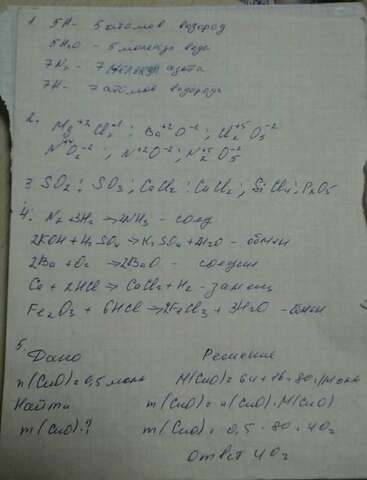 1. 5H - 5 атомов водород
5H₂O - 5 молекул воды
7N₂ - 7 молекул азота
7H - 7 атомов водорода
2. Mg⁺²Cl₂⁻¹ ; Ba⁺²O⁻² ; Cl₂⁺⁵O₅⁻²
N⁺⁴O₂⁻² ; N⁺²O⁻² ; N₂⁺⁵O₅⁻²
3. SO₂ ; SO₃ ; CaCl₂ ; CuCl₂ ; SiCl₄ ; P₂O₅
4. N₂ + 3H₂ → 2NH₃ - соед
2KOH + H₂SO₄ → K₂SO₄ + 2H₂O - обмен
2Ba + O₂ → 2BaO - соедин
Ca + 2HCl → CaCl₂ + H₂ - замещ
Fe₂O₃ + 6HCl → 2FeCl₃ + 3H₂O - обмен
5.
Дано Решение
n(CuO) = 0,5 моль M(CuO) = 64 + 16 = 80 г/моль
Найти m(CuO) = n(CuO) · M(CuO)
m(CuO) - ? m(CuO) = 0,5 · 80 = 40г
Ответ 40г